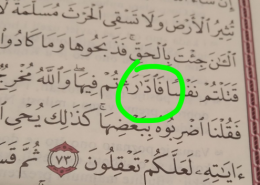 تُثِيرُ ٱلْأَرْضَ وَلَا تَسْقِى ٱلْحَرْثَ مُسَلَّمَةٌ لَّا
ٱلْـَٰٔنَ جِئْتَ بِٱلْحَقِّ ۚ فَذَبَحُوهَا وَمَا كَادُوا۟
قَتَلْتُمْ نَفْسًا فَٱدَّٰرَْٰٔتُمْ فِيهَا ۖ وَٱللَّهُ مُخْرِجٌ
فَقُلْنَا ٱضْرِبُوهُ بِبَعْضِهَا ۚ كَذَٰلِكَ يُحْىِ
ءَايَٰتِهِۦ لَعَلَّكُمْ تَعْقِلُونَ ٧٣ ثُمَّ